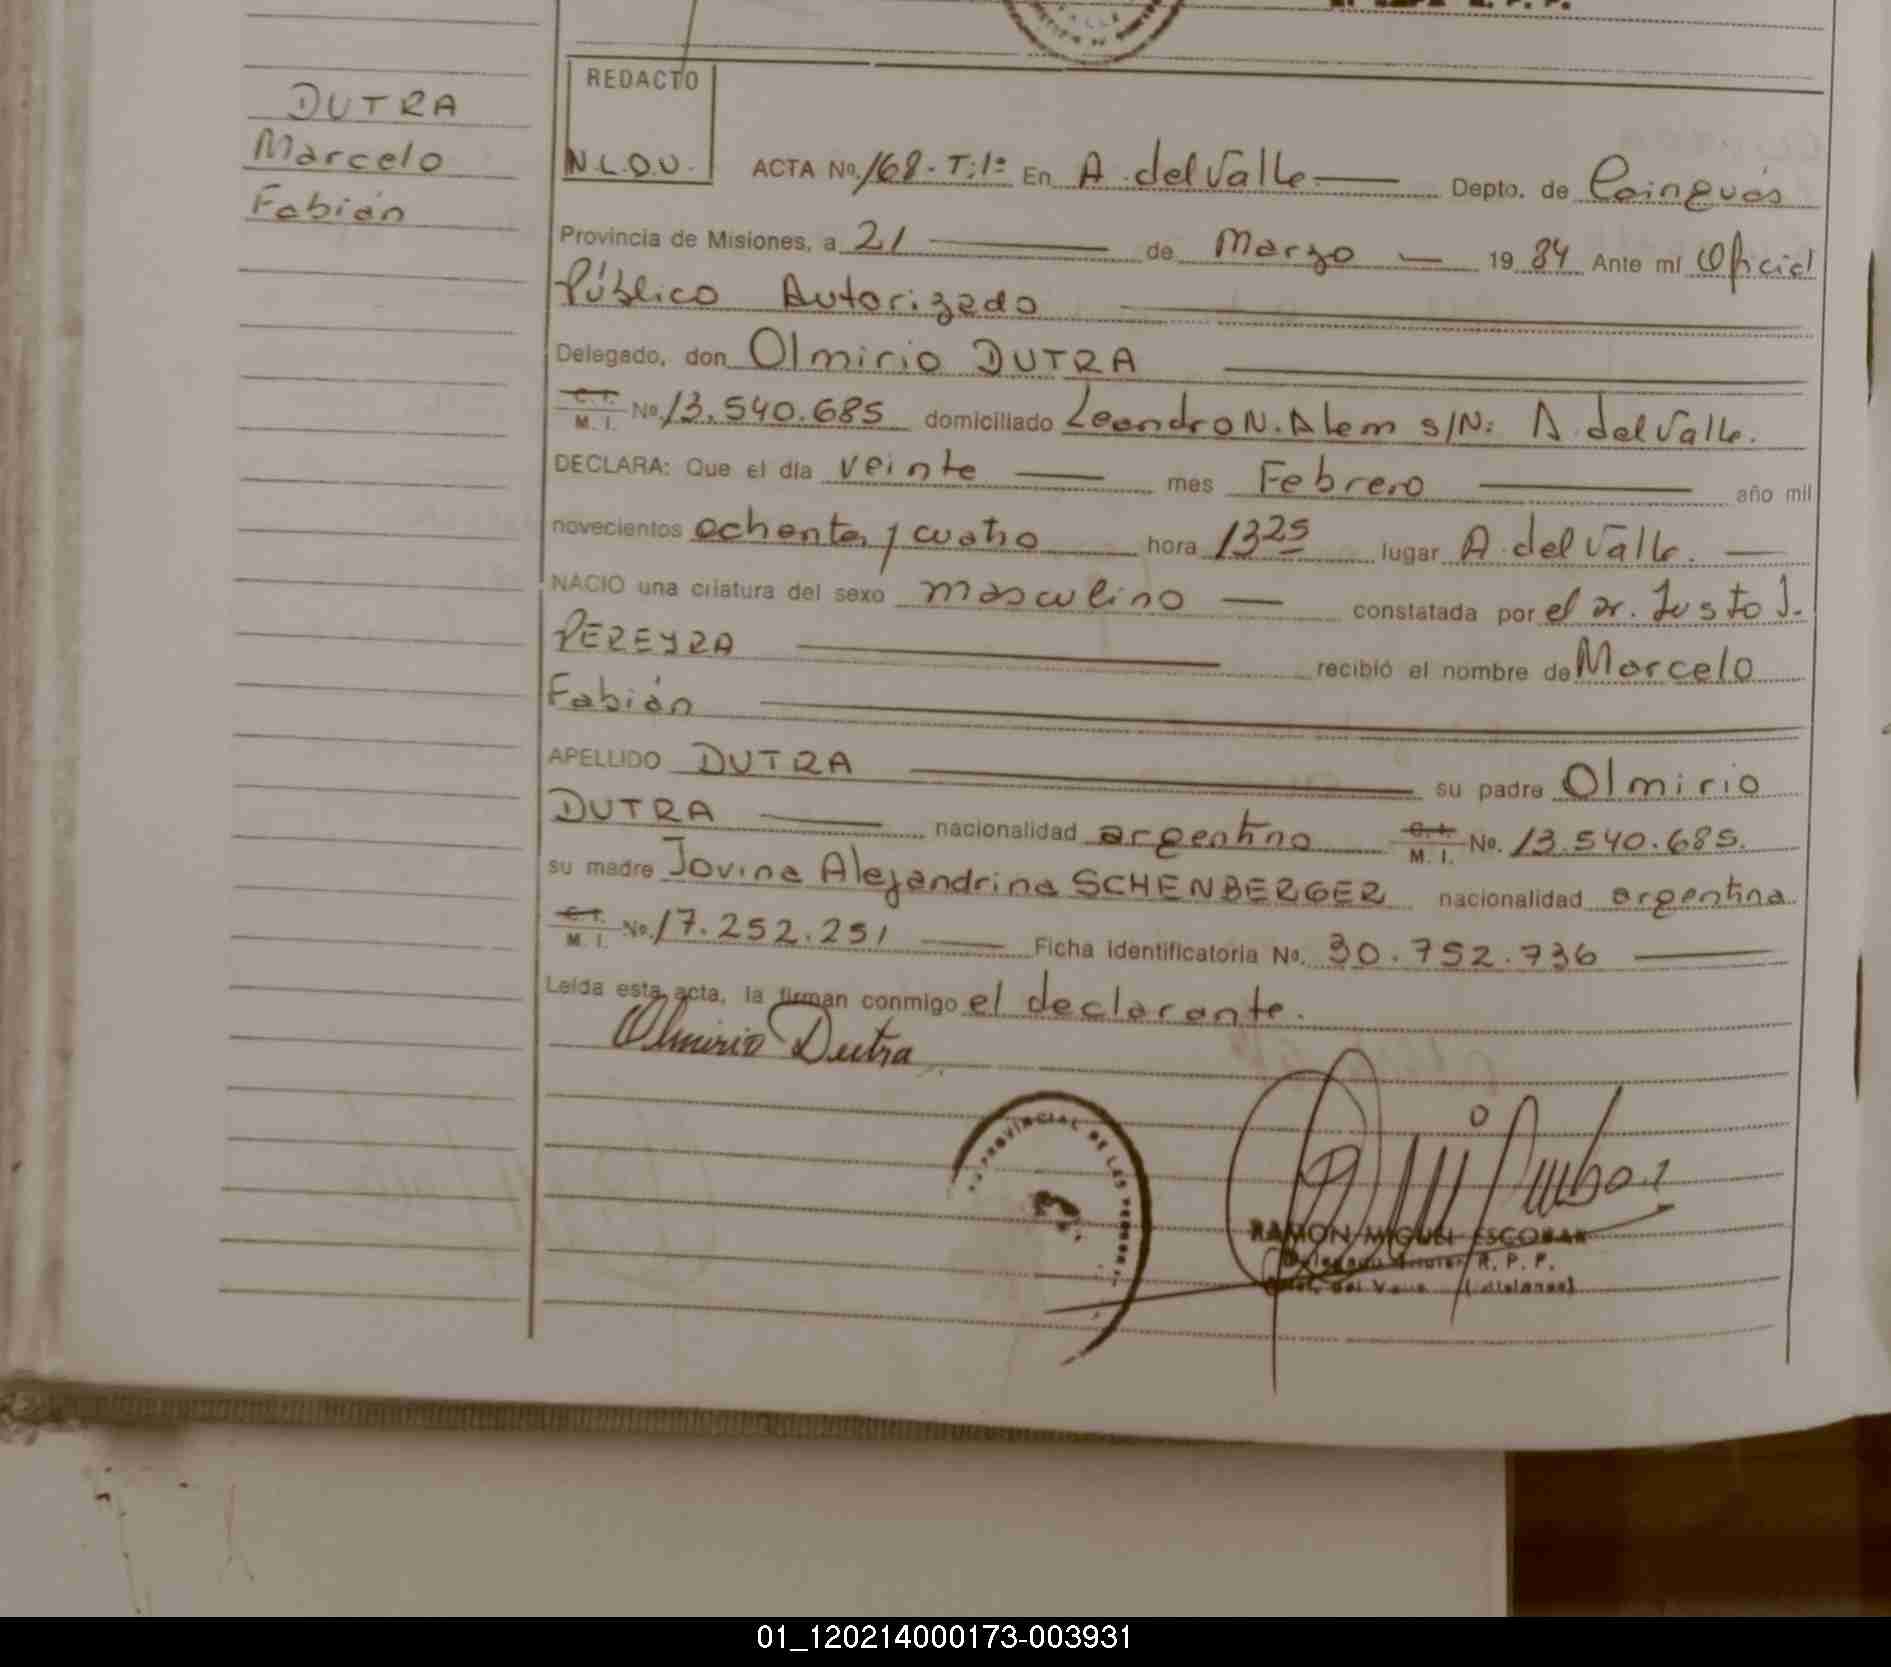 DUTRA
Marcelo
Fabián
REDACTO
N.L.D.U.
ACTA No. 168 - T: 1º En A. del Valle Depto. de Cainguás
Provincia de Misiones, a 21 de Marzo 19 84 Ante mí Oficial
Público Autorizado
Delegado, don Olmirio DUTRA
C. I. M. I. No. 13.540.685 domiciliado Leandro N. Alem s/N: A. del Valle.
DECLARA: Que el día veinte mes Febrero año mil
novecientos ochenta y cuatro hora 13 25 lugar A. del Valle.
NACIO una criatura del sexo masculino constatada por el Dr. Justo J.
PEREYRA recibió el nombre de Marcelo
Fabián
APELLIDO DUTRA su padre Olmirio
DUTRA nacionalidad argentino C. I. M. I. No. 13.540.685.
su madre Jovina Alejandrina SCHENBERGER nacionalidad argentina
C. I. M. I. No. 17.252.251 Ficha Identificatoria No. 30.752.736
Leída esta acta, la firman conmigo el declarante.
Olmirio Dutra
PROVINCIAL DE LAS PERSONAS
RAMON MIGUEL ESCOBAR
Delegado Titular R. P. P.
del Valle (Misiones)
01_120214000173-003931